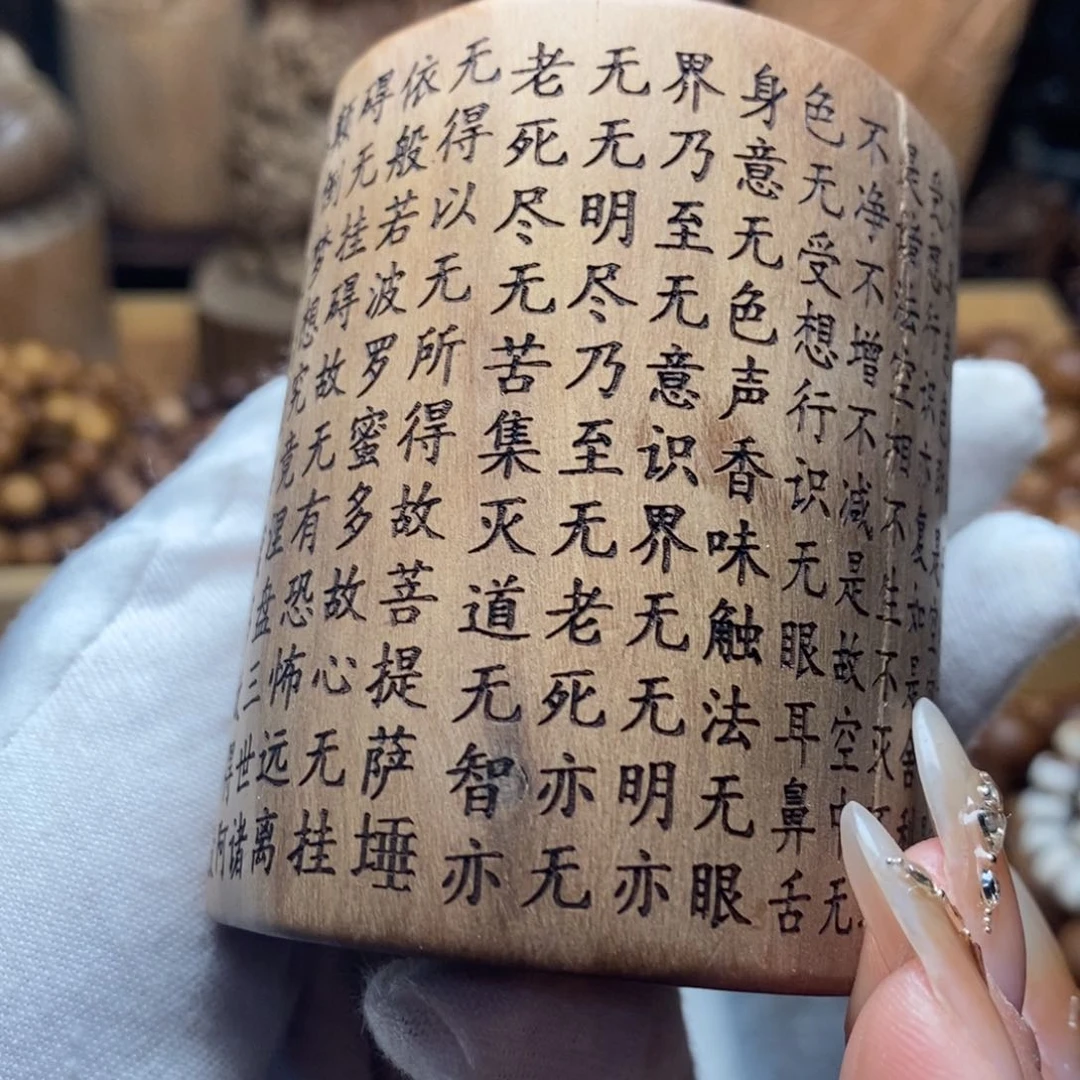 受想行识亦复如是舍利
是诸法空相不生不灭不
不净不增不减是故空中无
色无受想行识无眼耳鼻舌
身意无色声香味触法无眼
界乃至无意识界无无明亦
无无明尽乃至无老死亦无
老死尽无苦集灭道无智亦
无得以无所得故菩提萨埵
依般若波罗蜜多故心无挂
碍无挂碍故无有恐怖远离
颠倒梦想究竟涅盘三世诸